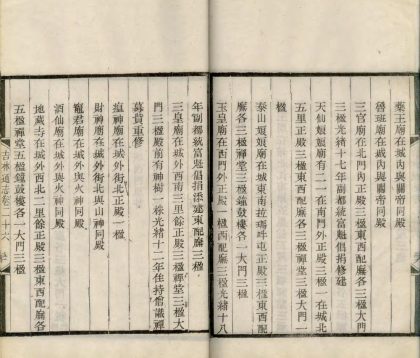 藥王廟在城內與關帝同殿
魯班廟在城內與關帝同殿
三官廟在北門內正殿三楹東西配廡各三楹大門
三楹光緒十七年副都統富魁倡捐修建
天仙娘娘廟有二一在南門外正殿三楹一在城北
五里正殿三楹東西配廡各三楹禪堂三楹大門一
楹
泰山娘娘廟在城東南拉瑞屯正殿三楹東西配
廡各三楹禪堂三楹鐘鼓樓各一大門三楹
玉皇廟在西門外正殿三楹西配廡三楹光緒十八
年副都統富魁倡捐添建東配廡三楹
三皇廟在城外三里餘正殿三楹禪堂三楹大
門三楹殿前有神樹一株光緒十二年住持僧議禪
募貲重修
瘟神廟在城外街北正殿一楹
財神廟在城外與山神同殿
龍君廟在城外與火神同殿
酒仙廟在城外與火神同殿
地藏寺在城外西北二里餘正殿三楹東西配廡各
五楹禪堂五楹鐘鼓樓各一大門三楹
吉林通志卷二十六